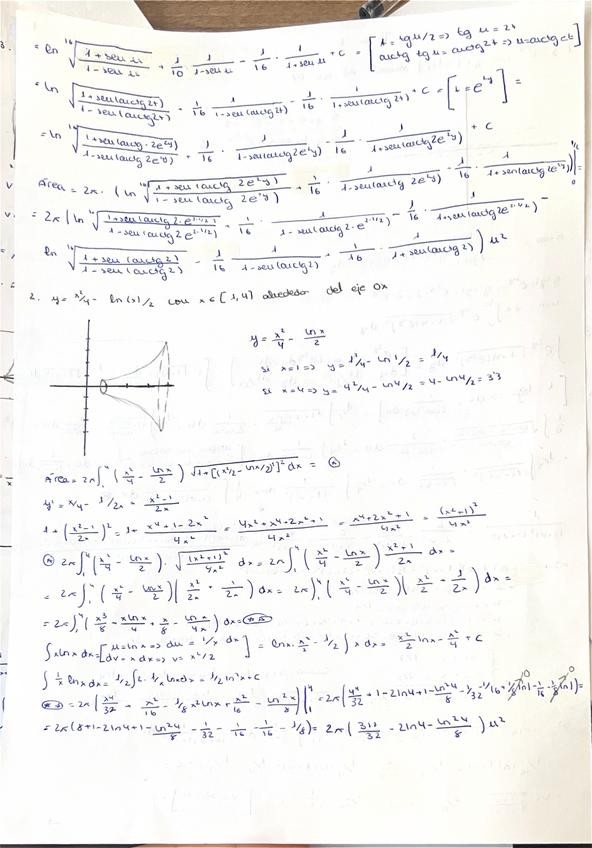 = ln ¹⁶√((1+sen u)/(1-sen u)) + 1/10 · 1/(1-sen u) - 1/16 · 1/(1+sen u) + C = [t = tg u/2 => tg u = 2t
arctg tg u = arctg 2t => u = arctg 2t]
= ln √((1+sen(arctg 2t))/(1-sen(arctg 2t))) + 1/16 · 1/(1-sen(arctg 2t)) - 1/16 · 1/(1+sen(arctg 2t)) + C = [t = e^2y] =
= ln ¹⁶√((1+sen(arctg · 2e^2y))/(1-sen(arctg 2e^2y))) + 1/16 · 1/(1-sen(arctg 2e^2y)) - 1/16 · 1/(1+sen(arctg 2e^2y)) + C
Área = 2π · (ln ¹⁶√((1+sen(arctg 2e^2y))/(1-sen(arctg 2e^2y))) + 1/16 · 1/(1-sen(arctg 2e^2y)) - 1/16 · 1/(1+sen(arctg 2e^2y)))|₀^1/2 =
= 2π (ln ¹⁶√((1+sen(arctg 2·e^(2·1/2)))/(1-sen(arctg 2e^(2·1/2)))) + 1/16 · 1/(1-sen(arctg 2·e^(2·1/2))) - 1/16 · 1/(1+sen(arctg 2e^(2·1/2))) -
ln ¹⁶√((1+sen(arctg 2))/(1-sen(arctg 2))) - 1/16 · 1/(1-sen(arctg 2)) + 1/16 · 1/(1+sen(arctg 2))) u²
2. y = x²/4 - ln(x)/2 con x∈[1,4] alrededor del eje OX
y = x²/4 - ln x/2
si x=1 => y = 1²/4 - ln 1/2 = 1/4
si x=4 => y = 4²/4 - ln 4/2 = 4 - ln 4/2 = 3'3
Área = 2π∫₁⁴ (x²/4 - ln x/2) √(1+[(x²/2 - ln x/2)']²) dx = (*)
y' = x/2 - 1/2x = (x²-1)/2x
1+((x²-1)/2x)² = 1 + (x⁴+1-2x²)/4x² = (4x²+x⁴-2x²+1)/4x² = (x⁴+2x²+1)/4x² = (x²+1)²/4x²
(*) 2π∫₁⁴ (x²/4 - ln x/2) · √((x²+1)²/4x²) dx = 2π∫₁⁴ (x²/4 - ln x/2) (x²+1)/2x dx =
= 2π∫₁⁴ (x²/4 - ln x/2)(x²/2x + 1/2x) dx = 2π∫₁⁴ (x²/4 - ln x/2)(x/2 + 1/2x) dx =
= 2π∫₁⁴ (x³/8 - x ln x/4 + x/8 - ln x/4x) dx = (**)
∫x ln x dx = [u = ln x => du = 1/x dx
dv = x dx => v = x²/2] = ln x · x²/2 - 1/2∫x dx = x²/2 ln x - x²/4 + C
∫1/x ln x dx = 1/2∫2 · 1/x ln x dx = 1/2 ln²x + C
(**) = 2π[x⁴/32 + x²/16 - 1/8 x² ln x + x²/16 - ln²x/8]|₁⁴ = 2π(4⁴/32 + 1 - 2ln4 + 1 - ln²4/8 - 1/32 - 1/16 + 1/8 ln1 - 1/16 - 1/8 ln1) =
= 2π(8+1-2ln4+1-ln²4/8 - 1/32 - 1/16 - 1/16 - 1/8) = 2π(310/32 - 2ln4 - ln²4/8) u²